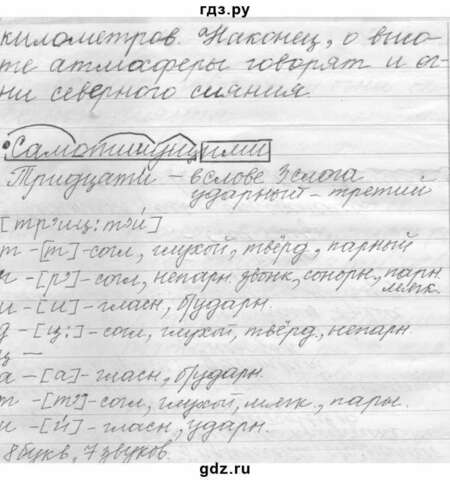 гдз.ру
километров. Наконец, о высо-
те атмосферы говорят и ог-
ни северного сияния.
Самопишущими
Тридцати – в слове 3 слога
ударный – третий
[тр'иц:т'и́]
т – [т] – согл, глухой, твёрд, парный
р – [р'] – согл, непарн. звонк, сонорн., парн
мягк.
и – [и] – гласн, б/ударн.
д – [ц:] – согл, глухой, твёрд, непарн.
ц –
а – [а] – гласн, б/ударн.
т – [т'] – согл, глухой, мягк, парн.
и – [и́] – гласн, ударн.
8 букв, 7 звуков.
gdz.ru